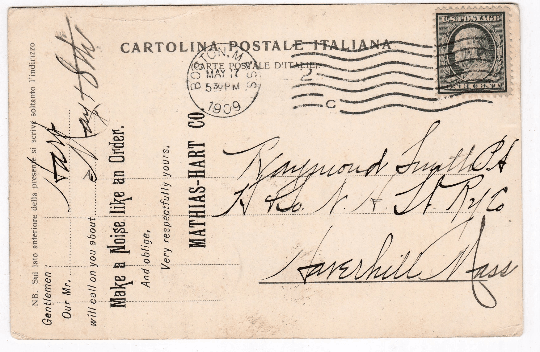 CARTOLINA POSTALE ITALIANA
(CARTE POSTALE D'ITALIE)
BOSTON, MASS.
MAY 17
5 30 PM
1909
2
C
U.S. POSTAGE
Raymond Smith
St Ry Co
Haverhill Mass
N.B. Sul lato anteriore della presente si scrive soltanto l'indirizzo
Gentlemen:
Our Mr. Hart
will call on you about May 18th
Make a Noise like an Order.
And oblige,
Very respectfully yours,
MATHIAS-HART CO